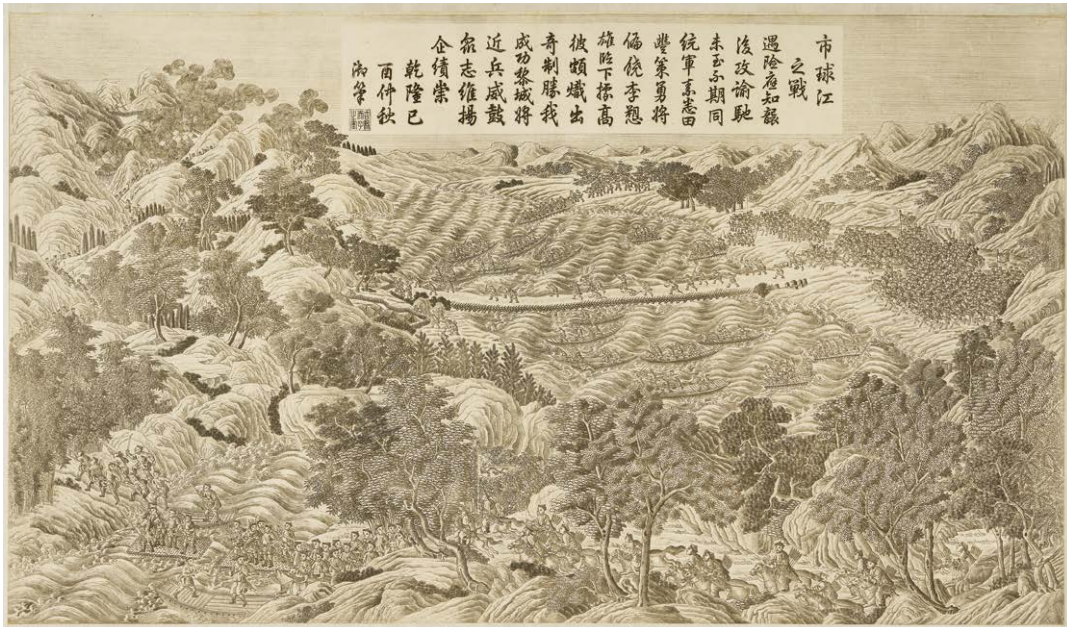 市球江
之戰
遇險應知艱
後改諭馳
未至不期同
統軍素悉田
豐策勇將
偏饒李愬
雄臨下據高
彼頗熾出
奇制勝我
成功黎城將
近兵威鼓
眾志維揚
企績崇
乾隆己
酉仲秋
御筆